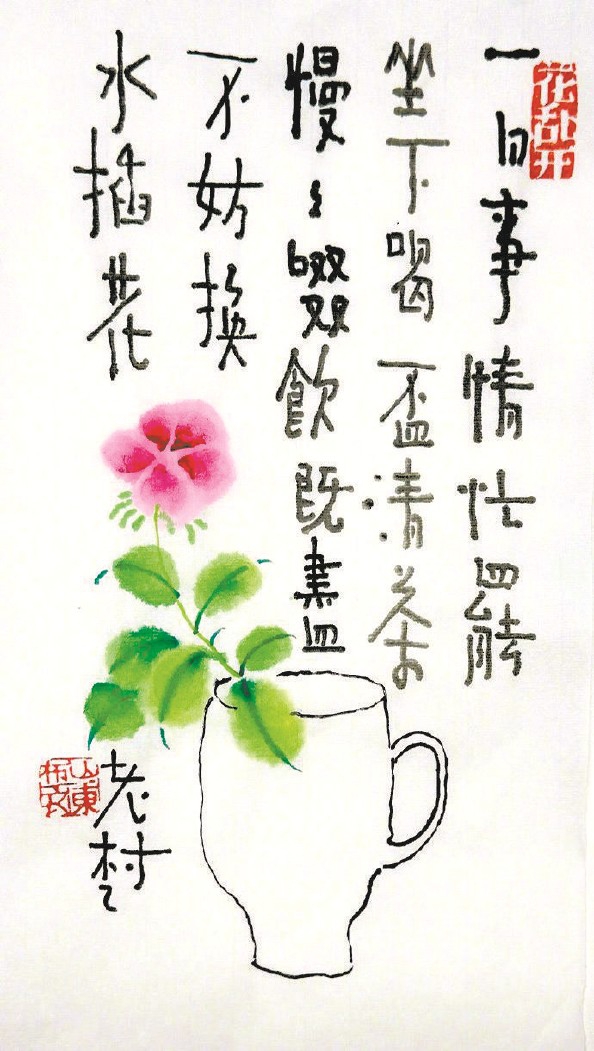 花乱开
一日事情忙罷
坐下喝盃清茶
慢々啜飲既盡
不妨換
水插花
老村
山東布衣